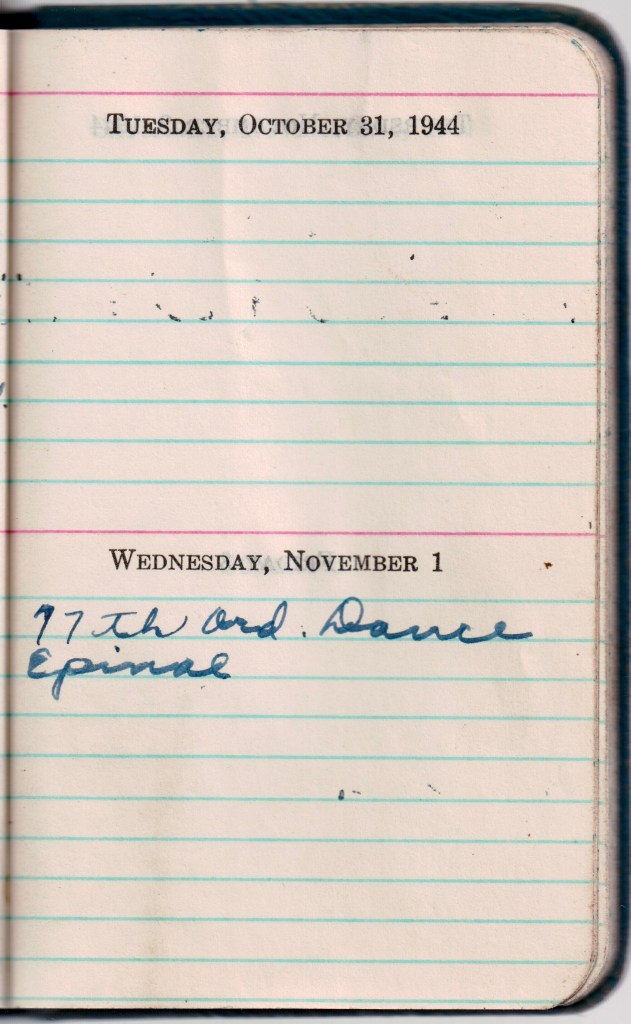 TUESDAY, OCTOBER 31, 1944
WEDNESDAY, NOVEMBER 1
77th Ord. Dance
Epinal